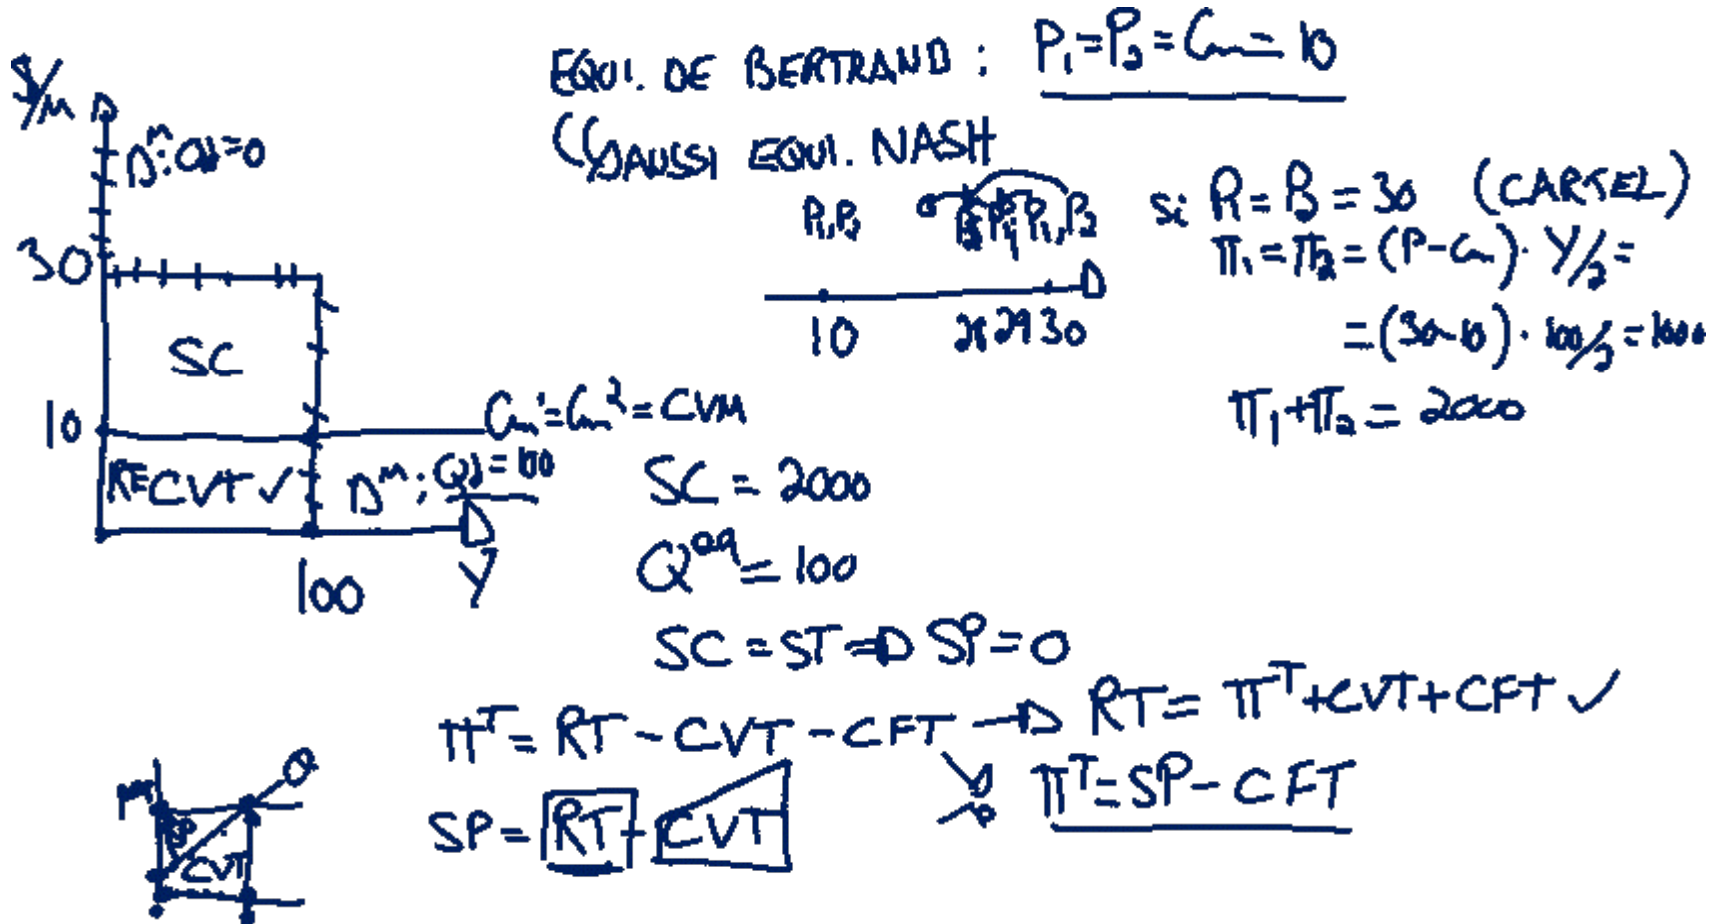 EQUI. DE BERTRAND : P₁=P₂=Cm=10
AUSSI EQUI. NASH
$/u
Dᵐ: Qd=0
30
SC
10
Cm¹=Cm²=CVM
CVT ✓
Dᵐ: Qd=100
100
Y
P₁,P₂
P₁,P₂
10
28 29 30
si P₁=P₂=30 (CARTEL)
π₁=π₂=(P-Cm)·Y/2=
=(30-10)·100/2=1000
π₁+π₂=2000
SC = 2000
Q^eq = 100
SC = ST ⇒ SP = 0
π^T = RT - CVT - CFT → RT = π^T+CVT+CFT ✓
SP = RT - CVT
π^T = SP - CFT
SP
CVT
O